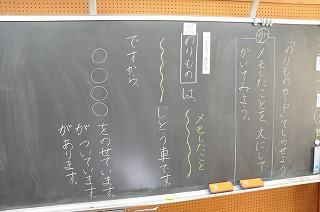 「のりものカード」でしらせよう
か メモしたことを文にして
かいてみよう。
のりもの は、 メモしたこと
じどう車です。
ですから、
○○○○ をのせています。
がついています。
があります。